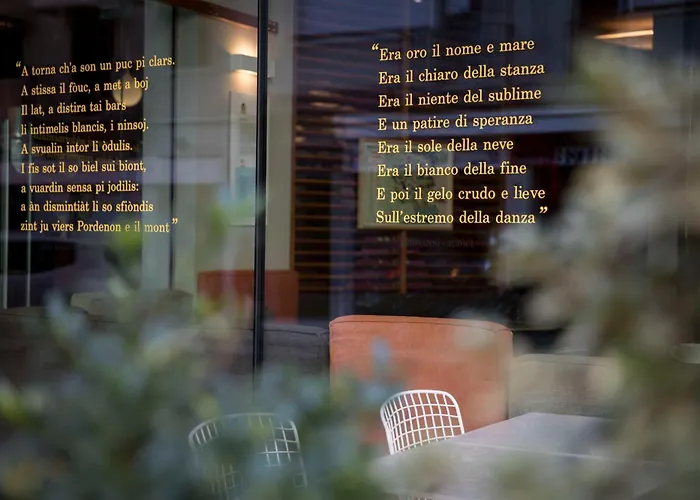 “A torna ch'a son un puc pi clars.
A stissa il fòuc, a met a boj
Il lat, a distira tai bars
li intimelis blancis, i ninsoj.
A svualin intor li òdulis.
I fis sot il so biel sui biont,
a vuardin sensa pi jodilis:
a àn dismintiàt li so sfiòndis
zint ju viers Pordenon e il mont”
“Era oro il nome e mare
Era il chiaro della stanza
Era il niente del sublime
E un patire di speranza
Era il sole della neve
Era il bianco della fine
E poi il gelo crudo e lieve
Sull’estremo della danza”